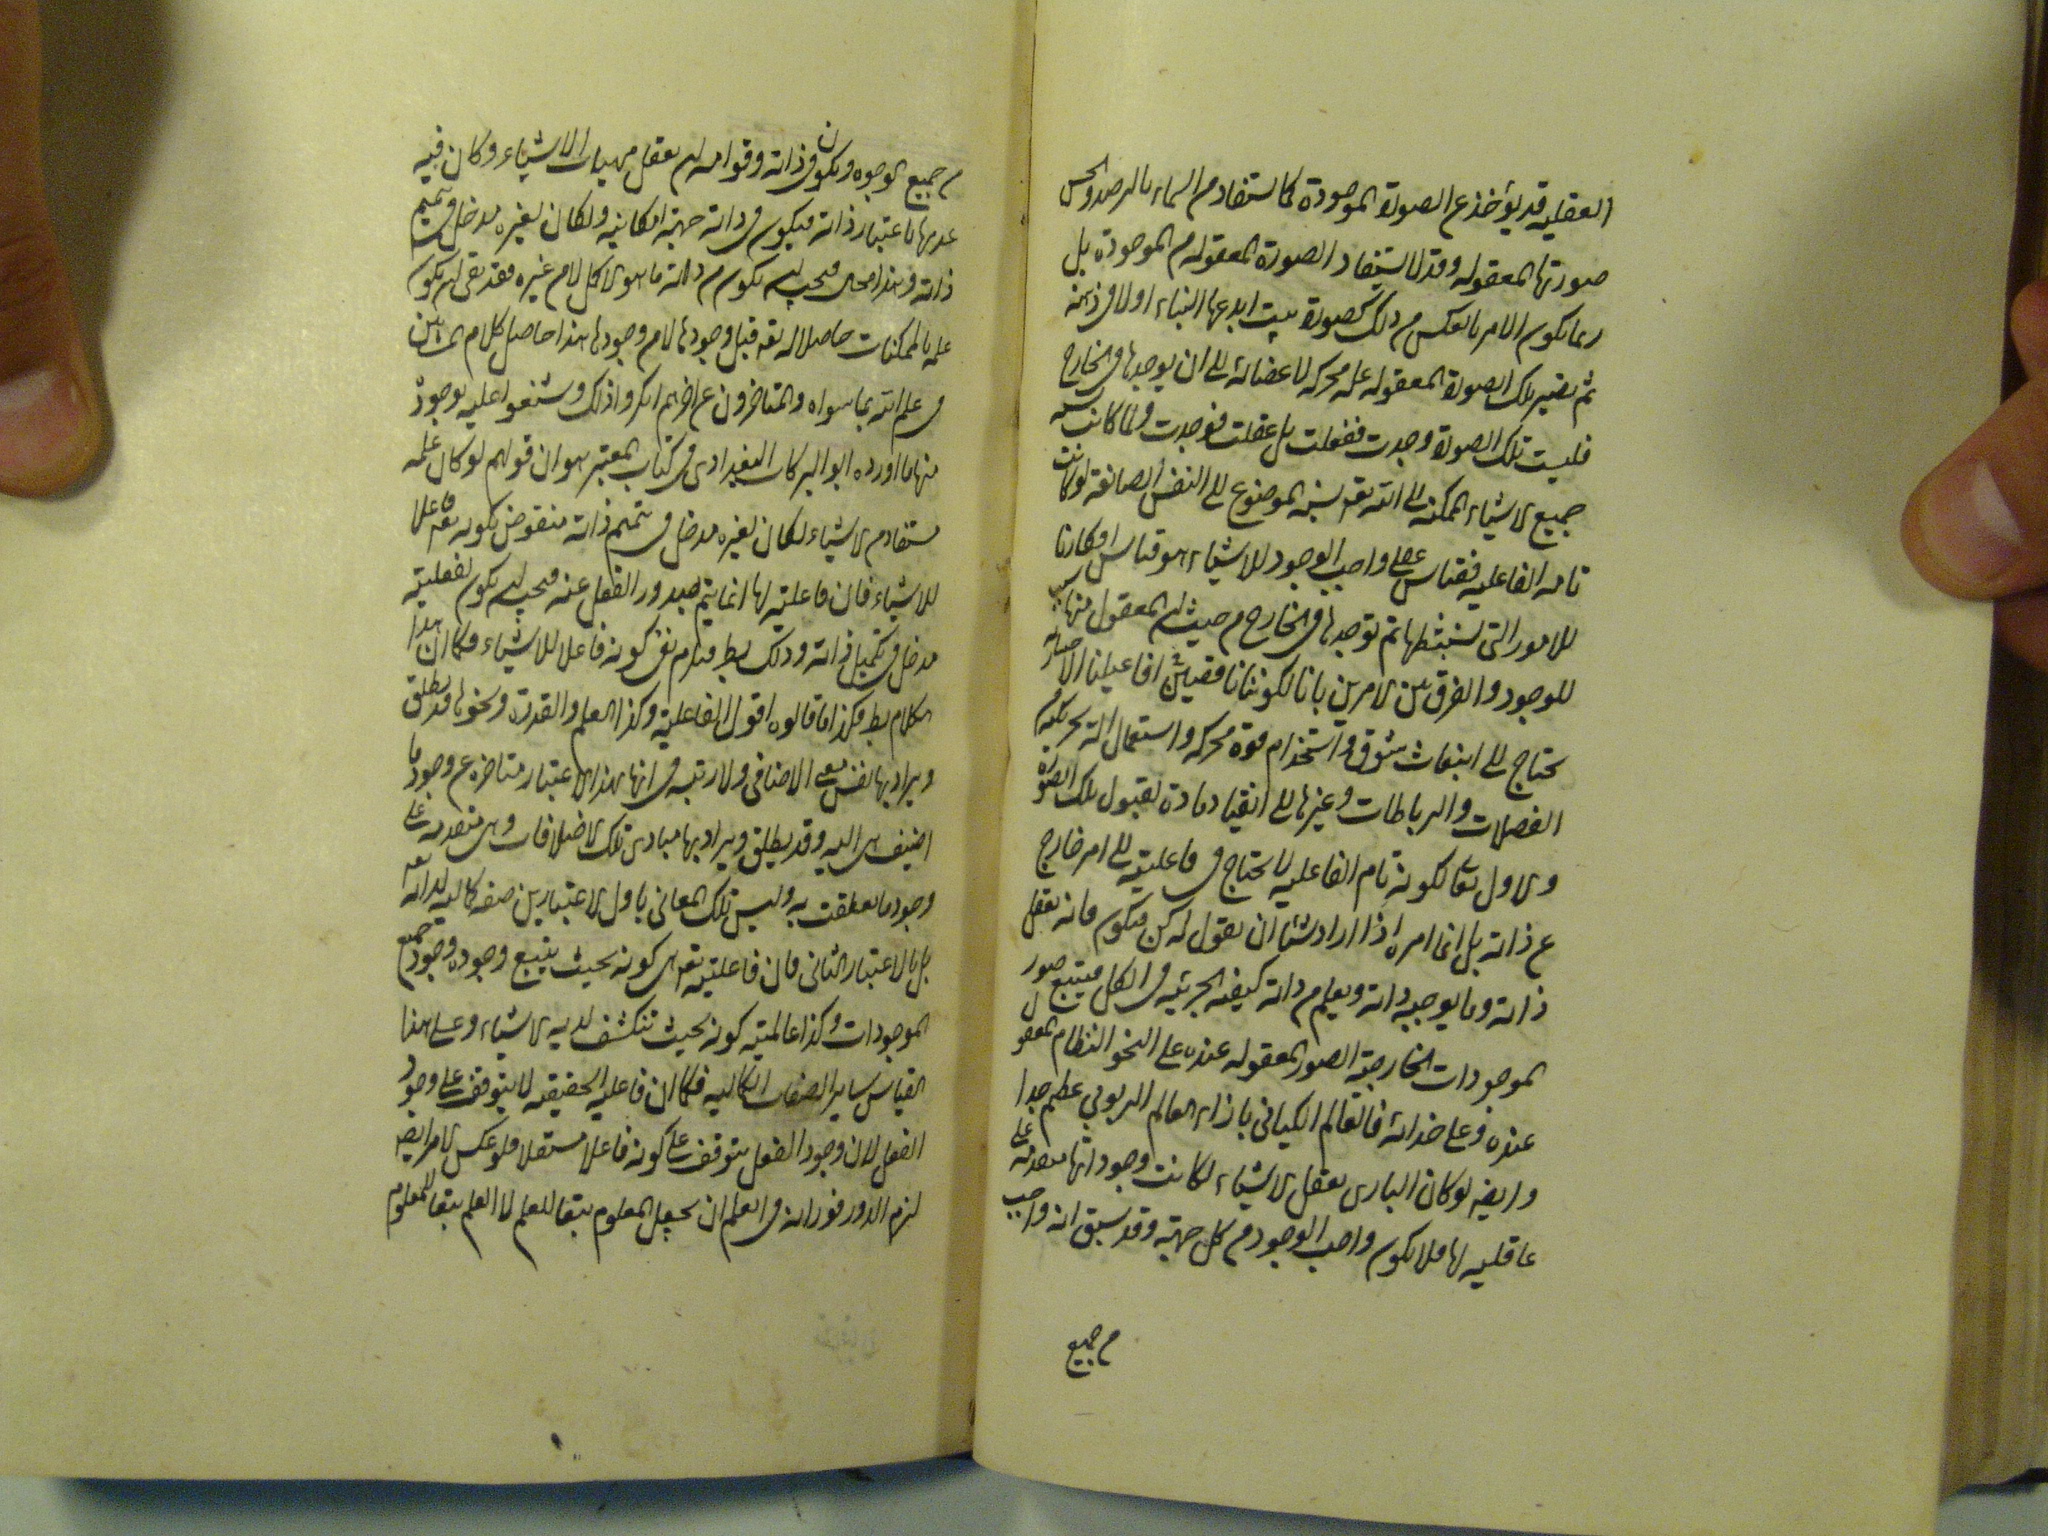 العقليه قد يؤخذ عن الصورة الموجودة كما ستفاد من السماء بالرصد والحس
صورتها المعقوله وقد لا يستفاد الصورة المعقوله من الموجودة بل
ربما يكون الامر بالعكس من ذلك كصورة بيت ابدعها البناء اولا فى ذهنه
ثم تصير تلك الصورة المعقوله عله محركه لاعضائه الى ان يوجدها فى الخارج
فليست تلك الصورة وجدت فعقلت بل عقلت فوجدت ولما كانت نسبه
جميع الاشياء الممكنه الى الله تعه نسبه الموضوع الى النفس الصانعه لو كانت
تامه الفاعليه فقياس عقل واجب الوجود للاشياء هو قياس افكارنا
للامور التى نستنبطها ثم نوجدها فى الخارج من حيث ان المعقول منها سبب
للوجود والفرق بين الامرين بانا لكوننا ناقصين فى افاعيلنا الاختياريه
نحتاج الى انبعاث شوق واستخدام قوة محركه واستعمال اله تحريكيه
العضلات والرباطات وغيرها الى انقياد مادة لقبول تلك الصورة
والاول تعا لكونه تام الفاعليه لا يحتاج فى فاعليته الى امر خارج
عن ذاته بل انما امره اذا اراد شيئا ان يقول له كن فيكون فانه يعقل
ذاته وما يوجبه ذاته ويعلم من ذاته كيفيه الخيريه فى الكل فيتبع صور
الموجودات الخارجية الصور المعقوله عنده على النحو النظام المعقول
عنده وعلى حذائه فالعالم الكيانى بازاء العالم الربوبي عظيم جدا
وايضه لو كان البارى يعقل الاشياء لكانت وجوداتها متقدمه على
عاقليه لها فلا يكون واجب الوجود من كل جهة وقد سبق انه واجب
من جميع
من جميع الوجوه ويكون فى ذاته وقوامه ان يعقل مهيات الاشياء وكان فيه
عدمها باعتبار ذاته فيكون فى ذاته جهة امكانيه ولكان لغيره مدخل فى تتميم
ذاته وهذا محال فيجب ان يكون من ذاته ما هو الاكل لا من غيره فقد بقى ان يكون
علمه بالممكنات حاصلا له تعه قبل وجودها لا من وجودها هذا حاصل كلام المشائين
فى علم الله بما سواه والمتاخرون عن اخرهم انكروا ذلك وشنعوا عليه بوجوه
منها ما اورده ابو البركات البغدادى فى كتاب المعتبر هو ان قولهم لو كان علمه
مستفاد من الاشياء لكان لغيره مدخل فى تتميم ذاته منقوض بكونه تعه فاعلا
للاشياء فان فاعليته لها انما يتم بصدور الفعل عنه فيجب ان يكون لفعليته
مدخل فى تكميل ذاته وذلك بط فيلزم نفى كونه فاعلا للاشياء فكما ان هذا
الكلام بط فكذا ما قالوه اقول الفاعلية وكذا العلم والقدرة ونحوها قد يطلق
ويراد بها نفس المعنى الاضافى ولا ريب فى انها بهذا الاعتبار متاخره عن وجود ما
اضيف هى اليه وقد يطلق ويراد بها مبادى تلك الاضافات وهى متقدمه على
وجود ما تعلقت به وليس تلك المعانى باول الاعتبارين صفه كماليه لذاته تعه
بل بالاعتبار الثانى فان فاعليته تعه هى كونه بحيث يتبع وجوده وجود جميع
الموجودات وكذا عالميته كونه بحيث تنكشف لديه الاشياء وعلى هذا
القياس ساير الصفات الكماليه فكما ان فاعليه الحقيقيه لا يتوقف على وجود
الفعل لان وجود الفعل يتوقف على كونه فاعلا مستقلا فلو عكس الامر ايضه
لزم الدور فوزانه فى العلم ان يجعل المعلوم تبعا للعلم لا العلم تبعا للمعلوم